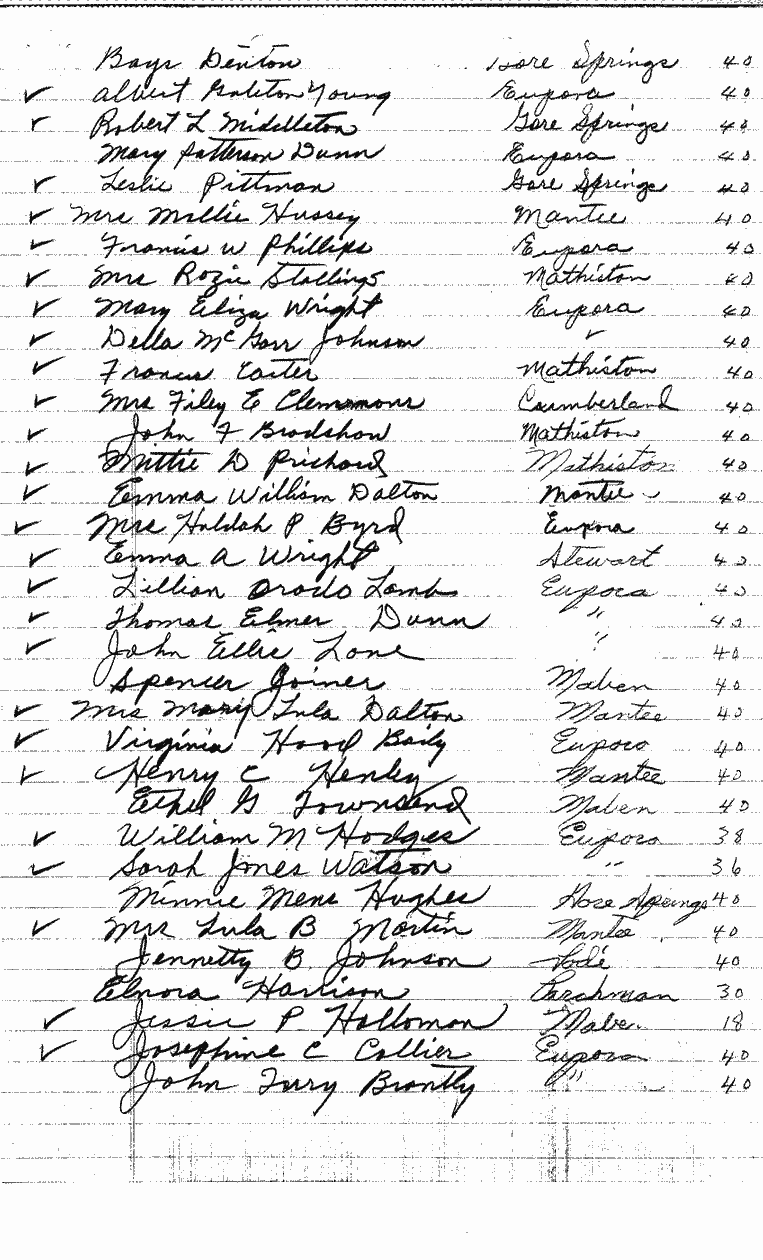 Bays Denton Gore Springs 40
✓ Albert Galeton Young Eupora 40
✓ Robert L Middleton Gore Springs 40
Mary Patterson Dunn Eupora 40
✓ Leslie Pittman Gore Springs 40
✓ Mrs Mollie Hussey Mantee 40
✓ Francis W Phillips Eupora 40
✓ Mrs Rozie Stallings Mathiston 40
✓ Mary Eliza Wright Eupora 40
✓ Della McGarr Johnson ✓ 40
✓ Francis Easter Mathiston 40
✓ Mrs Filey E Clemmons Cumberland 40
✓ John F Bradshaw Mathiston 40
✓ Mittie D Prichard Mathiston 40
✓ Emma William Dalton Mantee 40
✓ Mrs Huldah P Byrd Eupora 40
✓ Emma A Wright Stewart 40
✓ Lillian Lamb Eupora 40
✓ Thomas Elmer Dunn " 40
✓ John Ellie Lane " 40
Spencer Joiner Maben 40
✓ Mrs Mary Lula Dalton Mantee 40
✓ Virginia Hood Baily Eupora 40
✓ Henry C Henley Mantee 40
Ethel G Townsend Maben 40
✓ William M Hodges Eupora 38
✓ Sarah Jones Watson " 36
Minnie Mens Hughes Gore Springs 40
✓ Mrs Lula B Martin Mantee 40
Jennetty B Johnson 40
Elnora Harrison Parchman 30
✓ Jessie P Holloman Maben 18
✓ Josephine C Collier Eupora 40
John Tury Brantly " 40